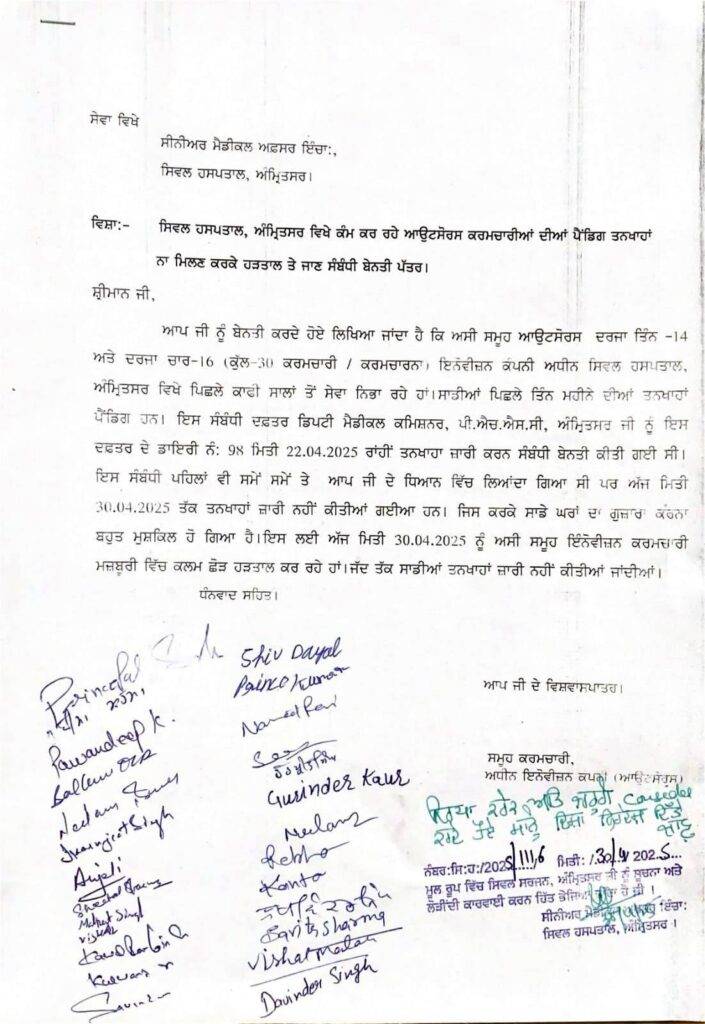 ਸੇਵਾ ਵਿਖੇ
ਸੀਨੀਅਰ ਮੈਡੀਕਲ ਅਫਸਰ ਇੰਚਾ:,
ਸਿਵਲ ਹਸਪਤਾਲ, ਅੰਮ੍ਰਿਤਸਰ।
ਵਿਸ਼ਾ:- ਸਿਵਲ ਹਸਪਤਾਲ, ਅੰਮ੍ਰਿਤਸਰ ਵਿਖੇ ਕੰਮ ਕਰ ਰਹੇ ਆਊਟਸੋਰਸ ਕਰਮਚਾਰੀਆਂ ਦੀਆਂ ਪੈਂਡਿਗ ਤਨਖਾਹਾਂ
ਨਾ ਮਿਲਣ ਕਰਕੇ ਹੜਤਾਲ ਤੇ ਜਾਣ ਸੰਬੰਧੀ ਬੇਨਤੀ ਪੱਤਰ।
ਸ਼੍ਰੀਮਾਨ ਜੀ,
ਆਪ ਜੀ ਨੂੰ ਬੇਨਤੀ ਕਰਦੇ ਹੋਏ ਲਿਖਿਆ ਜਾਂਦਾ ਹੈ ਕਿ ਅਸੀ ਸਮੂਹ ਆਊਟਸੋਰਸ ਦਰਜਾ ਤਿੰਨ -14
ਅਤੇ ਦਰਜਾ ਚਾਰ-16 (ਕੁੱਲ-30 ਕਰਮਚਾਰੀ / ਕਰਮਚਾਰਨਾ) ਇਨੋਵੀਜ਼ਨ ਕੰਪਨੀ ਅਧੀਨ ਸਿਵਲ ਹਸਪਤਾਲ,
ਅੰਮ੍ਰਿਤਸਰ ਵਿਖੇ ਪਿਛਲੇ ਕਾਫੀ ਸਾਲਾਂ ਤੋਂ ਸੇਵਾ ਨਿਭਾ ਰਹੇ ਹਾਂ।ਸਾਡੀਆਂ ਪਿਛਲੇ ਤਿੰਨ ਮਹੀਨੇ ਦੀਆਂ ਤਨਖਾਹਾਂ
ਪੈਂਡਿਗ ਹਨ। ਇਸ ਸੰਬੰਧੀ ਦਫਤਰ ਡਿਪਟੀ ਮੈਡੀਕਲ ਕਮਿਸ਼ਨਰ, ਪੀ.ਐਚ.ਐਸ.ਸੀ, ਅੰਮ੍ਰਿਤਸਰ ਜੀ ਨੂੰ ਇਸ
ਦਫਤਰ ਦੇ ਡਾਇਰੀ ਨੰ: 98 ਮਿਤੀ 22.04.2025 ਰਾਂਹੀਂ ਤਨਖਾਹਾ ਜਾਰੀ ਕਰਨ ਸੰਬੰਧੀ ਬੇਨਤੀ ਕੀਤੀ ਗਈ ਸੀ।
ਇਸ ਸੰਬੰਧੀ ਪਹਿਲਾਂ ਵੀ ਸਮੇਂ ਸਮੇਂ ਤੇ ਆਪ ਜੀ ਦੇ ਧਿਆਨ ਵਿੱਚ ਲਿਆਂਦਾ ਗਿਆ ਸੀ ਪਰ ਅੱਜ ਮਿਤੀ
30.04.2025 ਤੱਕ ਤਨਖਾਹਾਂ ਜ਼ਾਰੀ ਨਹੀਂ ਕੀਤੀਆਂ ਗਈਆ ਹਨ। ਜਿਸ ਕਰਕੇ ਸਾਡੇ ਘਰਾਂ ਦਾ ਗੁਜ਼ਾਰਾ ਕਰਨਾ
ਬਹੁਤ ਮੁਸ਼ਕਿਲ ਹੋ ਗਿਆ ਹੈ।ਇਸ ਲਈ ਅੱਜ ਮਿਤੀ 30.04.2025 ਨੂੰ ਅਸੀ ਸਮੂਹ ਇੰਨੋਵੀਜ਼ਨ ਕਰਮਚਾਰੀ
ਮਜ਼ਬੂਰੀ ਵਿੱਚ ਕਲਮ ਛੋੜ ਹੜਤਾਲ ਕਰ ਰਹੇ ਹਾਂ।ਜੱਦ ਤੱਕ ਸਾਡੀਆਂ ਤਨਖਾਹਾਂ ਜ਼ਾਰੀ ਨਹੀਂ ਕੀਤੀਆਂ ਜਾਂਦੀਆਂ।
ਧੰਨਵਾਦ ਸਹਿਤ।
Princepal
Pawandeep K.
Neelam
Anjali
Mehat Singh
Vishal
Shiv Dayal
Prince Kumar
Gurinder Kaur
Neelam
Rekha
Kanta
Sharma
Vishal
Davinder Singh
ਆਪ ਜੀ ਦੇ ਵਿਸ਼ਵਾਸਪਾਤਰ।
ਸਮੂਹ ਕਰਮਚਾਰੀ,
ਅਧੀਨ ਇਨੋਵੀਜ਼ਨ ਕੰਪਨੀ (ਆਊਟਸੋਰਸ)
ਨੰਬਰ:ਸਿ:ਹ:/2025/1116 ਮਿਤੀ: 30/4/2025
ਮੂਲ ਰੂਪ ਵਿੱਚ ਸਿਵਲ ਸਰਜਨ, ਅੰਮ੍ਰਿਤਸਰ ਜੀ ਨੂੰ ਸੂਚਨਾ ਅਤੇ
ਲੋੜੀਂਦੀ ਕਾਰਵਾਈ ਕਰਨ ਹਿੱਤ ਭੇਜਿਆ ਜਾਂਦਾ ਹੈ ਜੀ।
ਸੀਨੀਅਰ ਮੈਡੀਕਲ ਅਫਸਰ ਇੰਚਾ:
ਸਿਵਲ ਹਸਪਤਾਲ, ਅੰਮ੍ਰਿਤਸਰ।